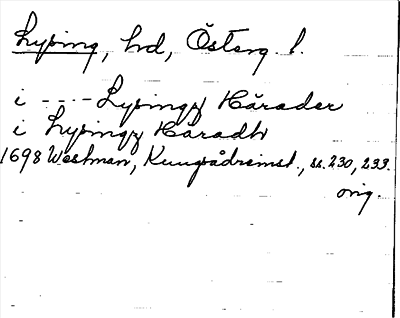 Lysing, hd, Österg. l.
i - - - - Lysingz Härader
i Lysingz Häradh
1698 Westman, Kungsådreinst., ss. 230, 233.
orig.